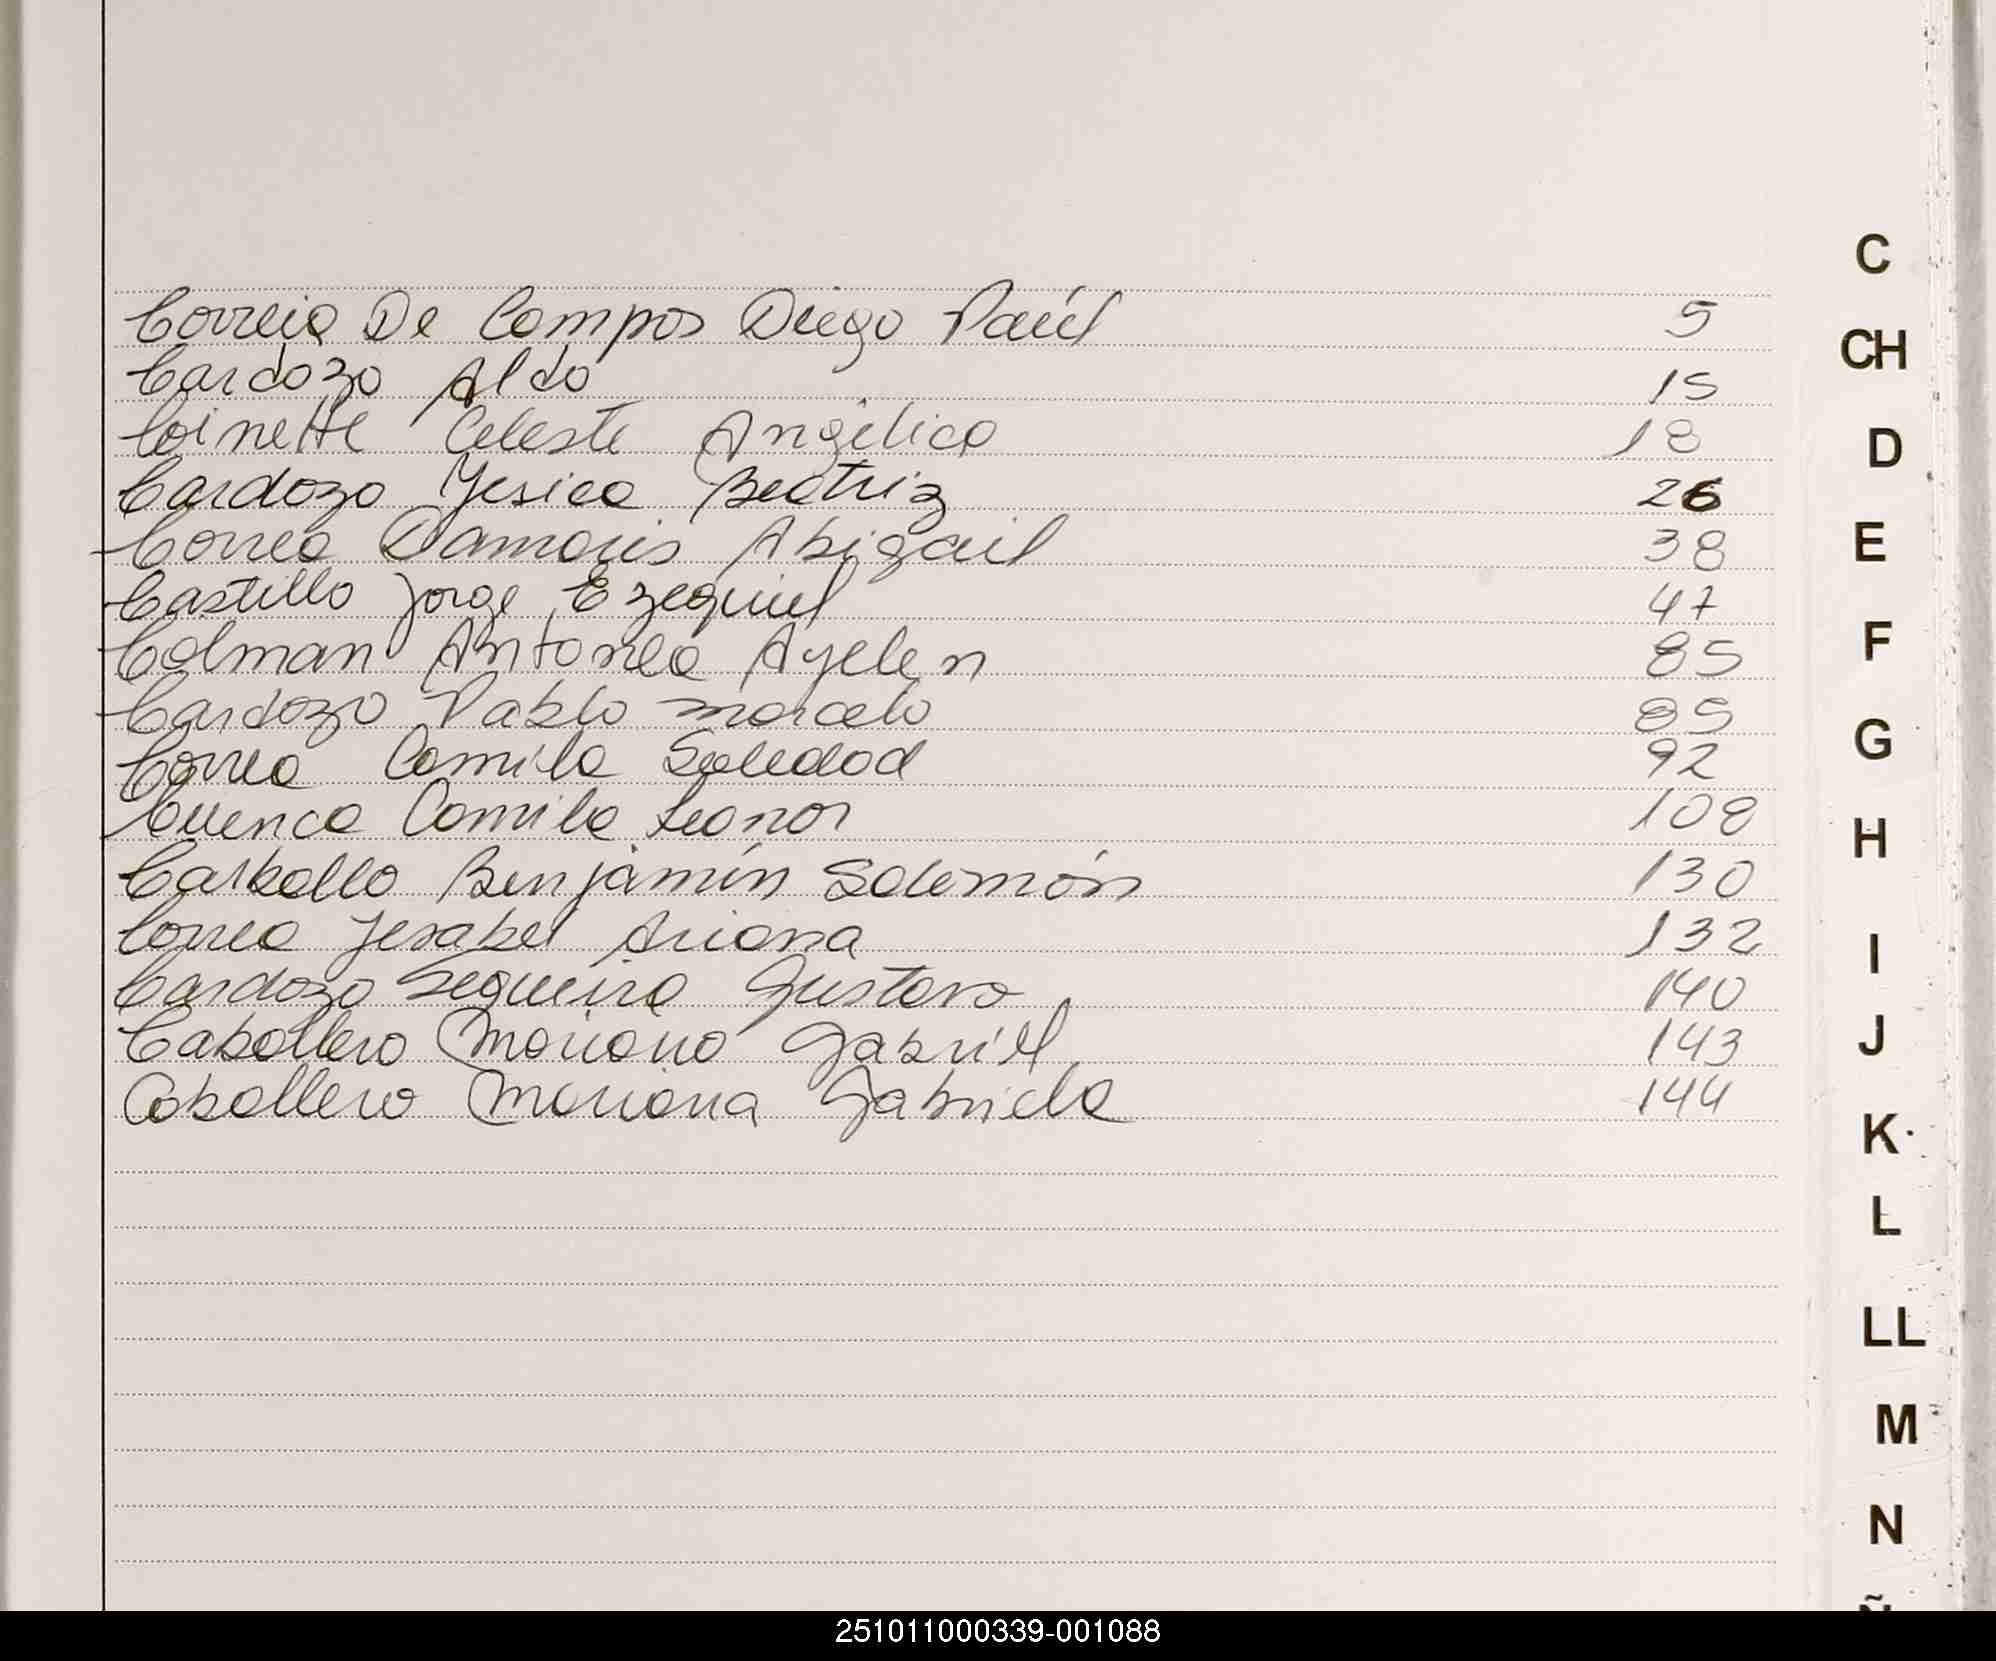 Correia De Campos Diego Raúl 5
Cardozo Aldo 15
Coinette Celeste Angélica 18
Cardozo Yesica Beatriz 26
Correa Damaris Abigail 38
Castillo Jorge Ezequiel 47
Colman Antonela Ayelen 85
Cardozo Pablo Marcelo 85
Correa Camila Soledad 92
Cuenca Camila Leonor 108
Carballo Benjamín Salomón 130
Correa Jesabel Ariana 132
Cardozo Sequeira Gustavo 140
Caballero Mariano Gabriel 143
Caballero Mariana Gabriela 144
C
CH
D
E
F
G
H
I
J
K
L
LL
M
N
251011000339-001088